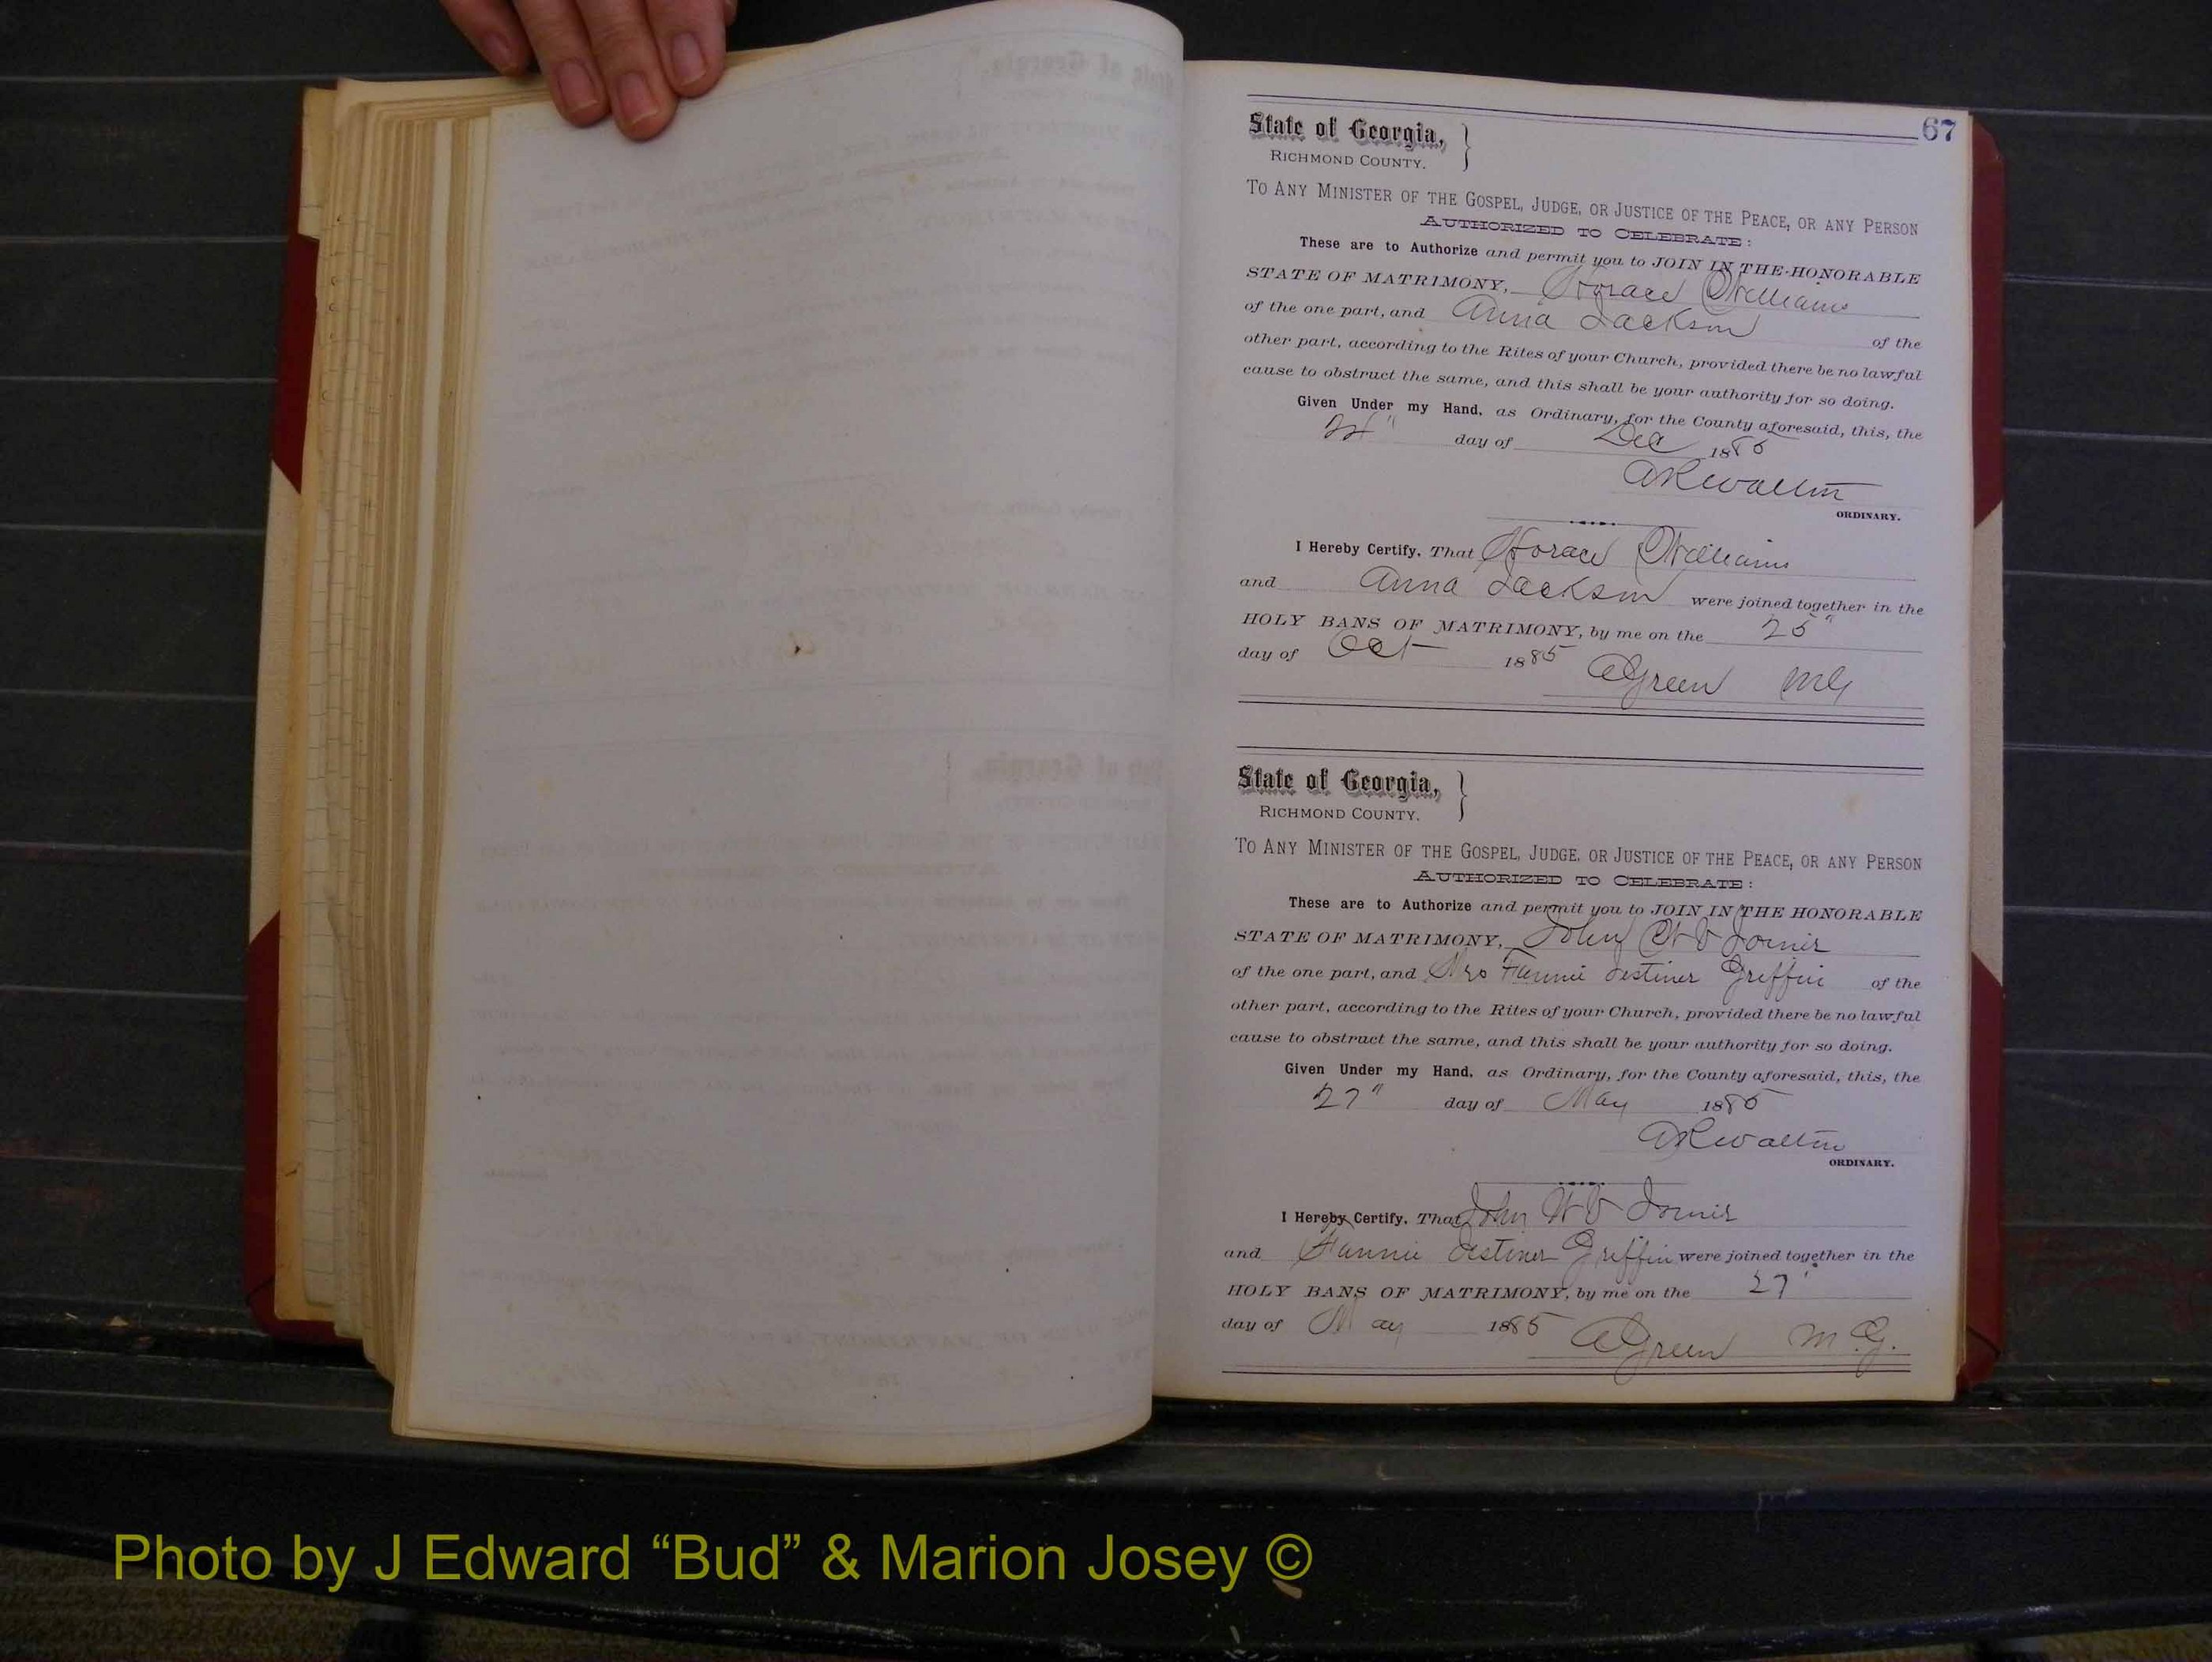 67
State of Georgia, }
RICHMOND COUNTY.
TO ANY MINISTER OF THE GOSPEL, JUDGE, OR JUSTICE OF THE PEACE, OR ANY PERSON
AUTHORIZED TO CELEBRATE:
These are to Authorize and permit you to JOIN IN THE HONORABLE
STATE OF MATRIMONY, Horace Williams
of the one part, and Anna Jackson of the
other part, according to the Rites of your Church, provided there be no lawful
cause to obstruct the same, and this shall be your authority for so doing.
Given Under my Hand, as Ordinary, for the County aforesaid, this, the
24" day of Dec 1885
A R Walton
ORDINARY.
I Hereby Certify, That Horace Williams
and Anna Jackson were joined together in the
HOLY BANS OF MATRIMONY, by me on the 25"
day of Oct 1885 A Green MG
State of Georgia, }
RICHMOND COUNTY.
TO ANY MINISTER OF THE GOSPEL, JUDGE, OR JUSTICE OF THE PEACE, OR ANY PERSON
AUTHORIZED TO CELEBRATE:
These are to Authorize and permit you to JOIN IN THE HONORABLE
STATE OF MATRIMONY, John W
of the one part, and Mrs Fannie Griffin of the
other part, according to the Rites of your Church, provided there be no lawful
cause to obstruct the same, and this shall be your authority for so doing.
Given Under my Hand, as Ordinary, for the County aforesaid, this, the
27" day of May 1885
A R Walton
ORDINARY.
I Hereby Certify, That John W
and Fannie Griffin were joined together in the
HOLY BANS OF MATRIMONY, by me on the 27"
day of May 1885 A Green M.G.
Photo by J Edward “Bud” & Marion Josey ©